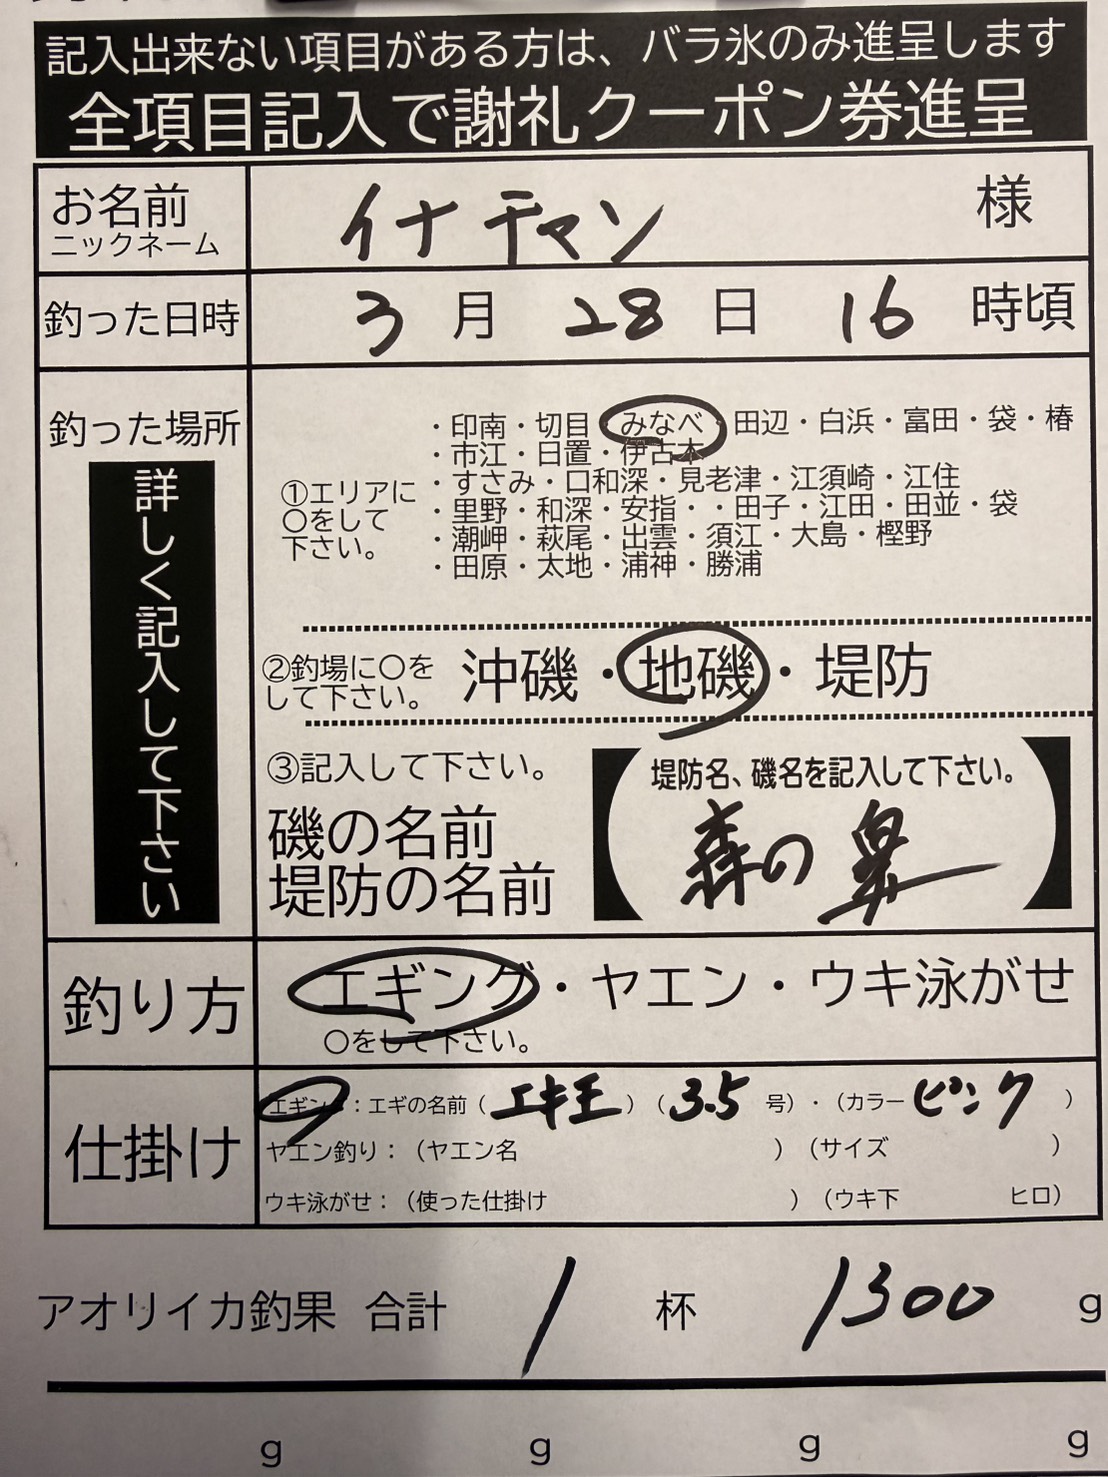 記入出来ない項目がある方は、バラ氷のみ進呈します
全項目記入で謝礼クーポン券進呈
お名前
ニックネーム
イナチャン 様
釣った日時
3月28日16時頃
釣った場所
詳しく記入して下さい
①エリアに
〇をして
下さい。
・印南・切目・みなべ・田辺・白浜・富田・袋・椿
・市江・日置・伊古木
・すさみ・口和深・見老津・江須崎・江住
・里野・和深・安指・・田子・江田・田並・袋
・潮岬・萩尾・出雲・須江・大島・樫野
・田原・太地・浦神・勝浦
②釣場に〇を
して下さい。
沖磯・地磯・堤防
③記入して下さい。
磯の名前
堤防の名前
堤防名、磯名を記入して下さい。
森の鼻
釣り方
エギング・ヤエン・ウキ泳がせ
〇をして下さい。
仕掛け
エギング：エギの名前（エギ王）（3.5号）・（カラーピンク）
ヤエン釣り：（ヤエン名）（サイズ）
ウキ泳がせ：（使った仕掛け）（ウキ下ヒロ）
アオリイカ釣果 合計 1杯 1300g
g g g g